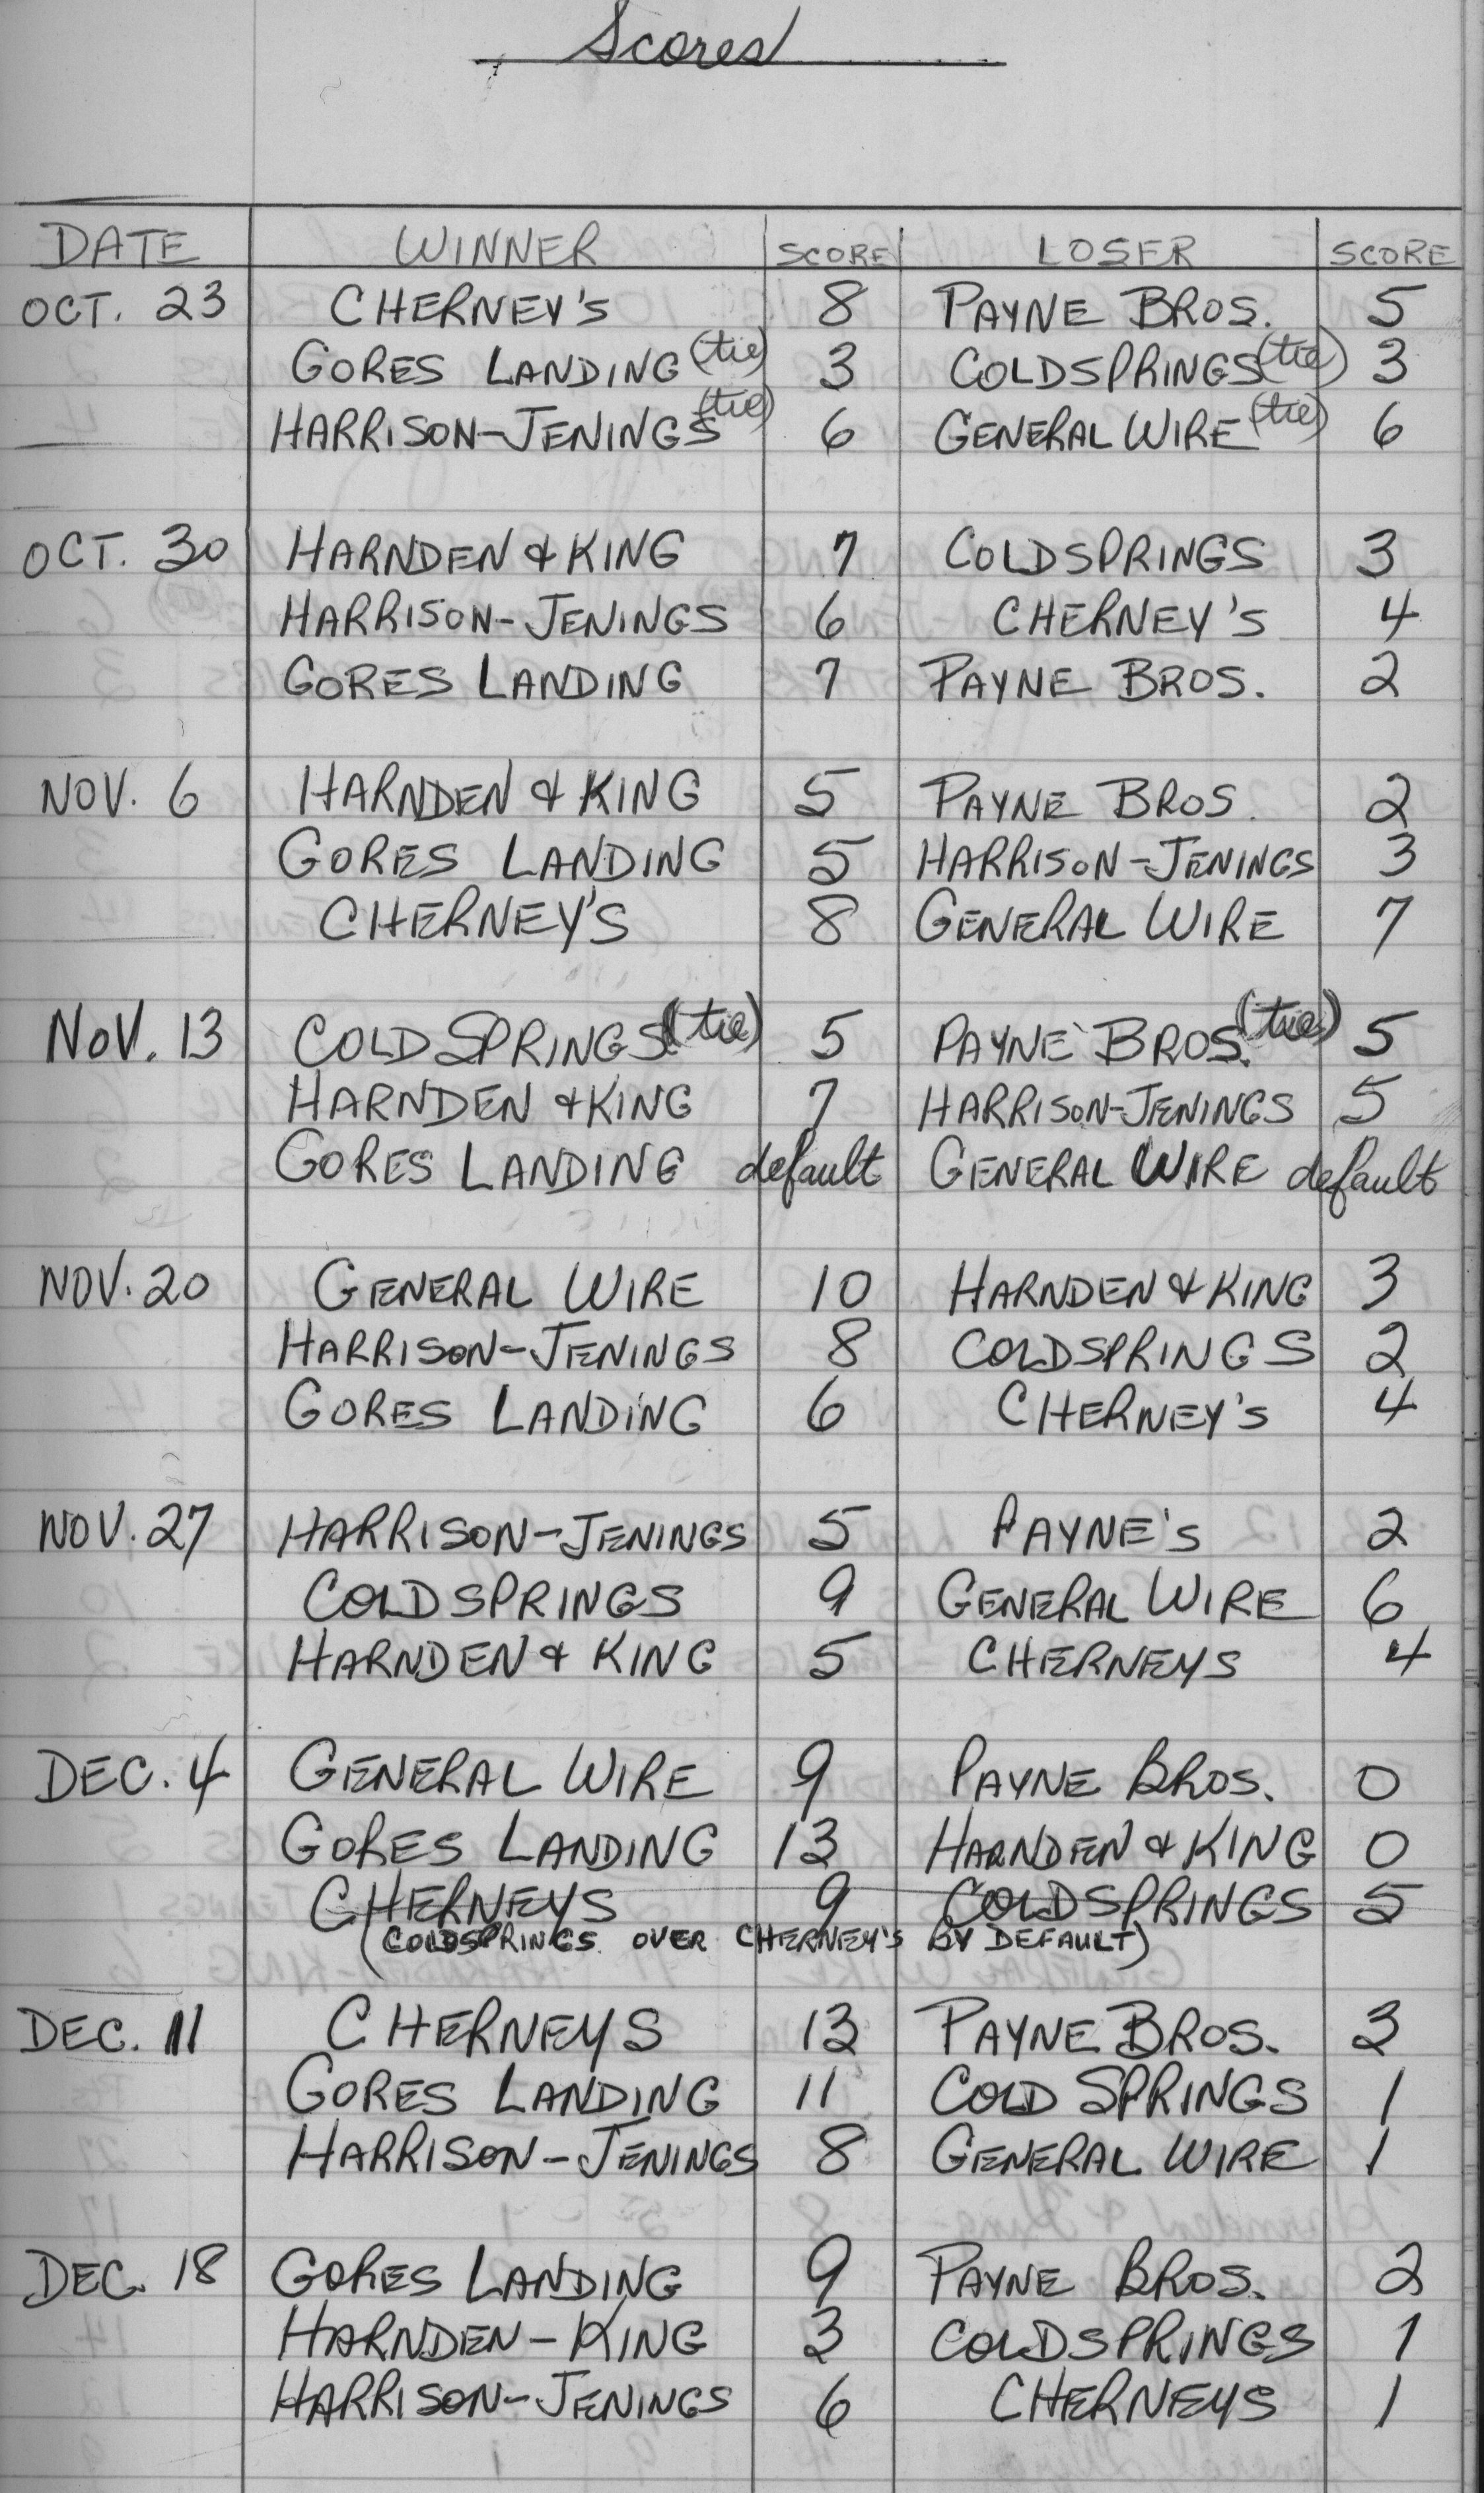 Scores
DATE WINNER SCORE LOSER SCORE
OCT. 23 CHERNEY'S 8 PAYNE BROS. 5
GORES LANDING (tie) 3 COLDSPRINGS (tie) 3
HARRISON-JENINGS (tie) 6 GENERAL WIRE (tie) 6
OCT. 30 HARNDEN & KING 7 COLDSPRINGS 3
HARRISON-JENINGS 6 CHERNEY'S 4
GORES LANDING 7 PAYNE BROS. 2
NOV. 6 HARNDEN & KING 5 PAYNE BROS. 2
GORES LANDING 5 HARRISON-JENINGS 3
CHERNEY'S 8 GENERAL WIRE 7
NOV. 13 COLD SPRINGS (tie) 5 PAYNE BROS. (tie) 5
HARNDEN & KING 7 HARRISON-JENINGS 5
GORES LANDING default GENERAL WIRE default
NOV. 20 GENERAL WIRE 10 HARNDEN & KING 3
HARRISON-JENINGS 8 COLDSPRINGS 2
GORES LANDING 6 CHERNEY'S 4
NOV. 27 HARRISON-JENINGS 5 PAYNE'S 2
COLDSPRINGS 9 GENERAL WIRE 6
HARNDEN & KING 5 CHERNEYS 4
DEC. 4 GENERAL WIRE 9 PAYNE BROS. 0
GORES LANDING 13 HARNDEN & KING 0
CHERNEYS 9 COLDSPRINGS 5
(COLDSPRINGS OVER CHERNEY'S BY DEFAULT)
DEC. 11 CHERNEYS 13 PAYNE BROS. 3
GORES LANDING 11 COLD SPRINGS 1
HARRISON-JENINGS 8 GENERAL WIRE 1
DEC. 18 GORES LANDING 9 PAYNE BROS. 2
HARNDEN-KING 3 COLDSPRINGS 1
HARRISON-JENINGS 6 CHERNEYS 1